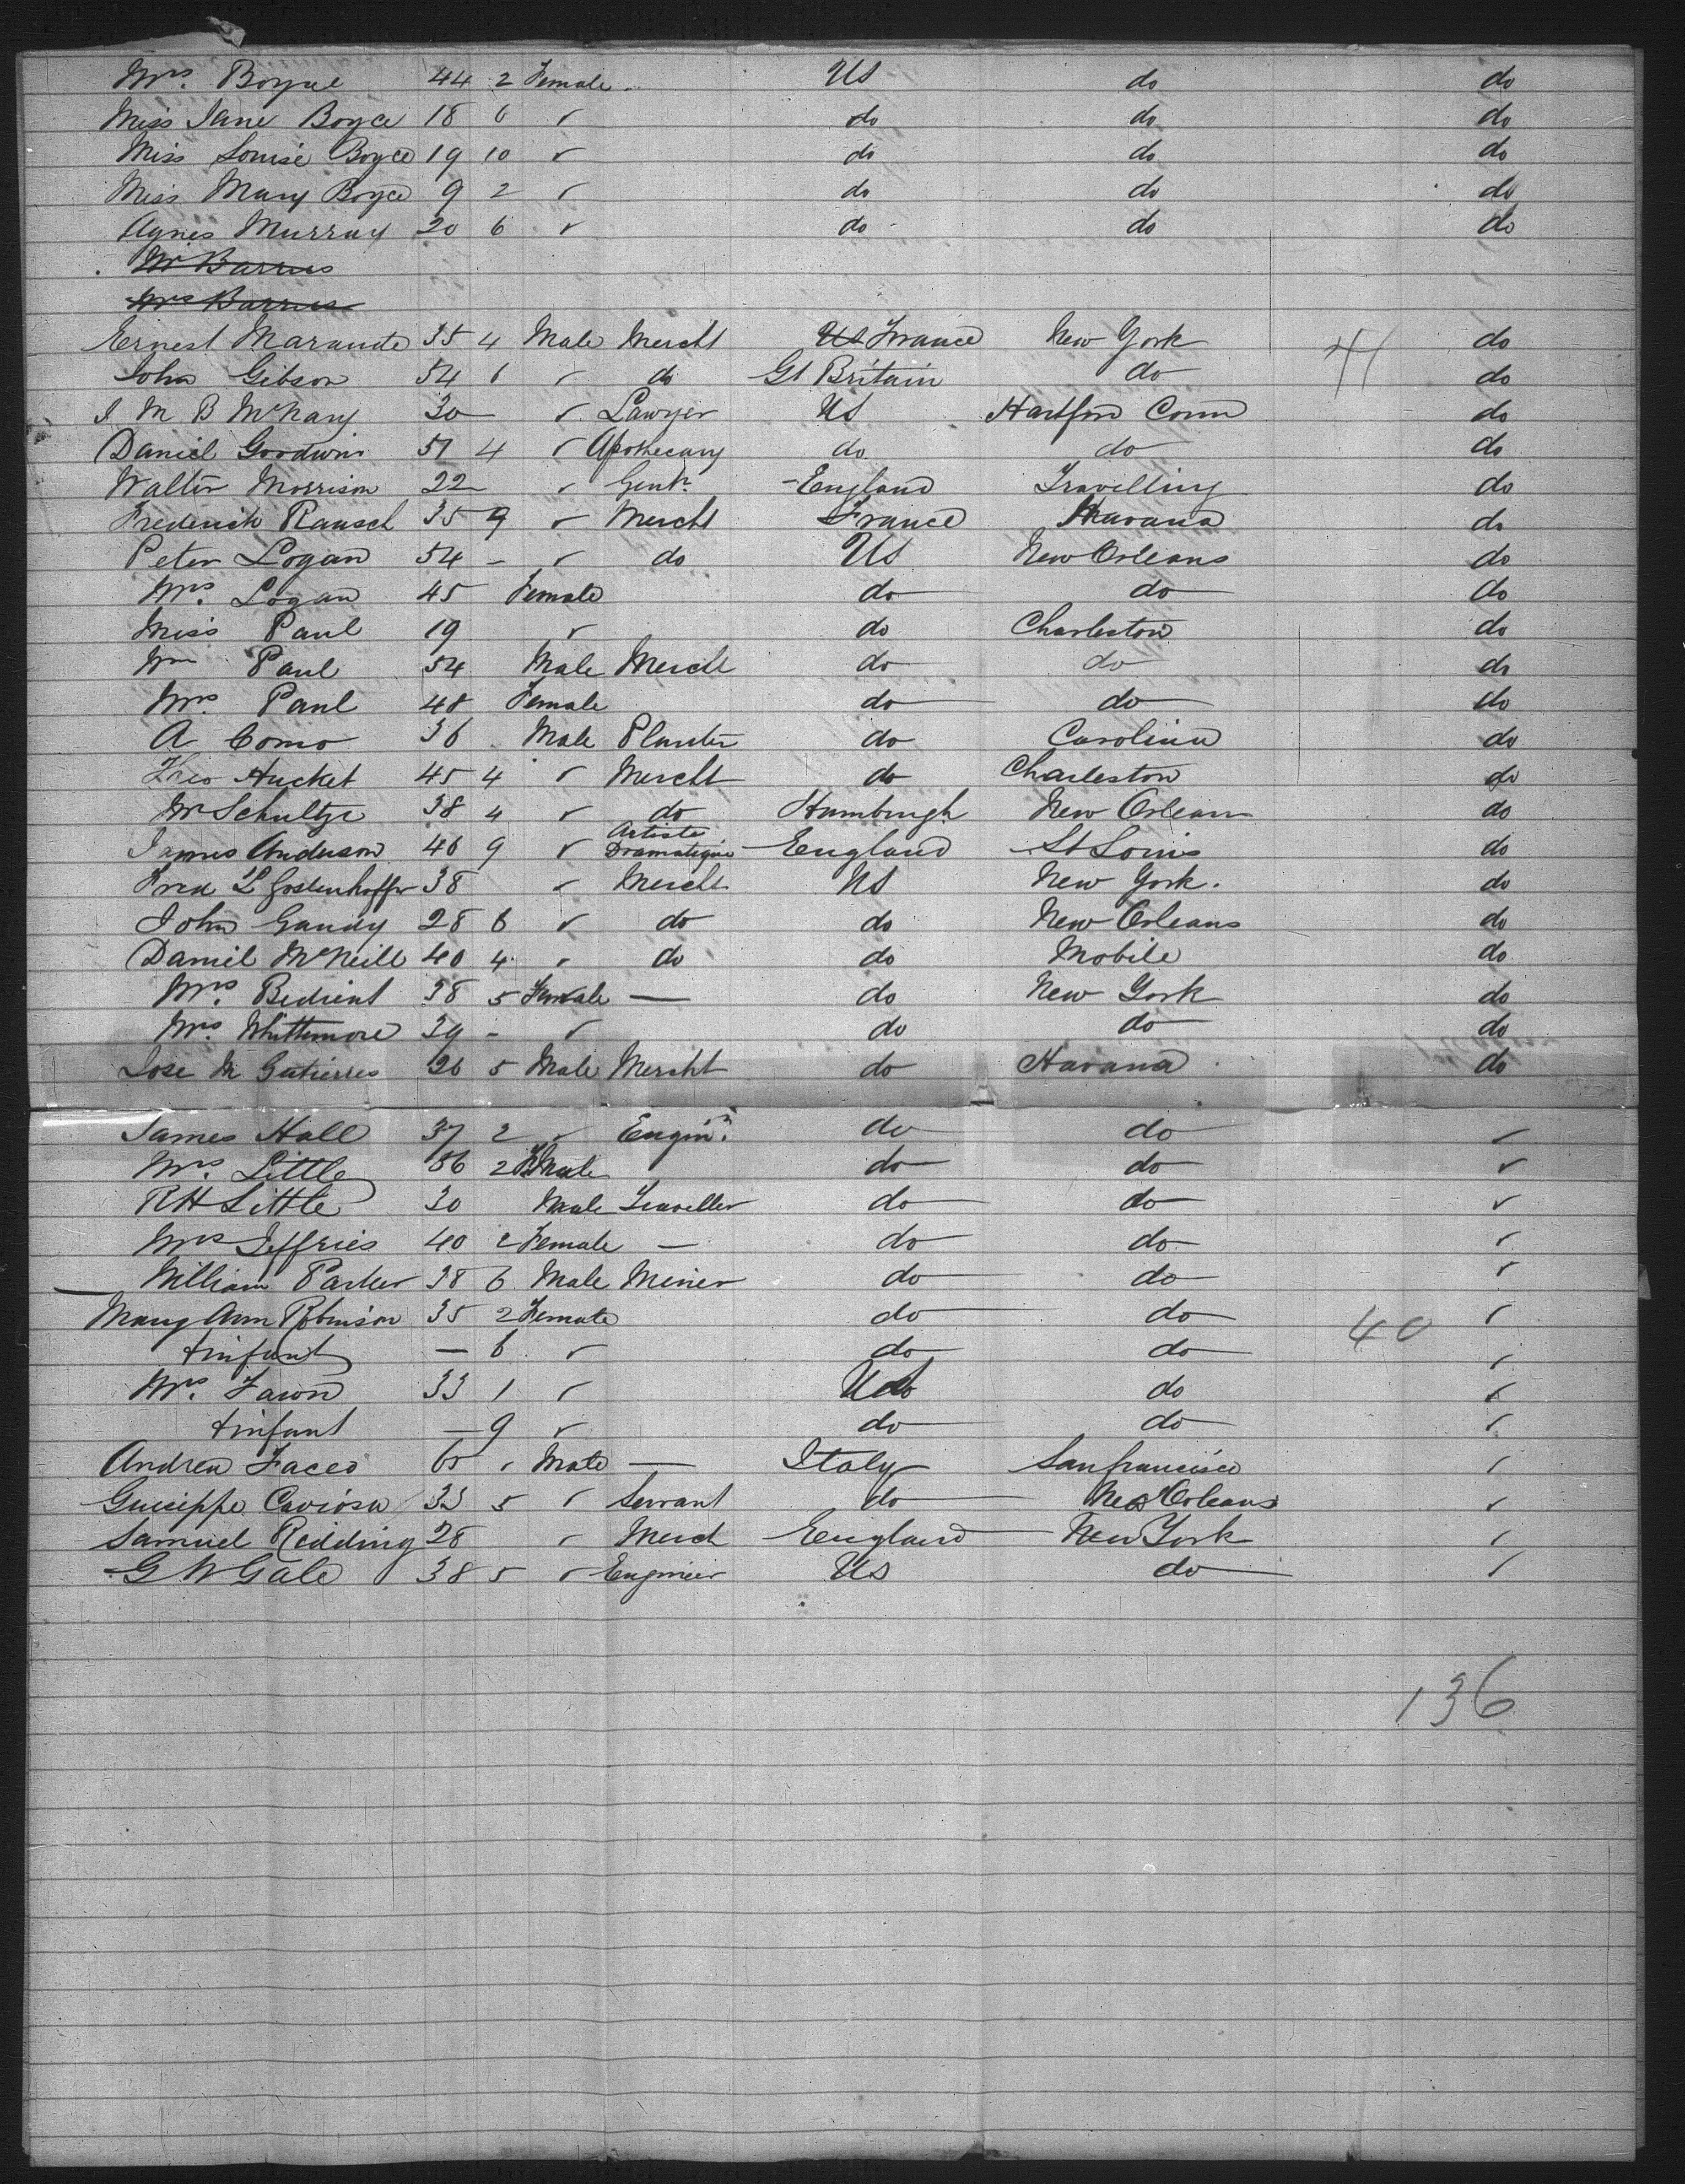 Mrs. Boyce 44 2 Female US do do
Miss Jane Boyce 18 6 " do do do
Miss Louise Boyce 19 10 " do do do
Miss Mary Boyce 9 2 " do do do
Agnes Murray 20 6 " do do do
Mr Barrus
Mrs Barrus
Ernest Maraunte 35 4 Male Mercht US France New York 41 do
John Gibson 54 6 " do Gt Britain do do
J M B McNary 30 " Lawyer US Hartford Conn do
Daniel Goodwin 51 4 " Apothecary do do do
Walter Morrison 22 " Gentn England Travelling do
Frederick Rausch 35 9 " Mercht France Havana do
Peter Logan 54 - " do US New Orleans do
Mrs. Logan 45 Female do do do
Miss Paul 19 " do Charleston do
Wm Paul 54 Male Mercht do do do
Mrs. Paul 48 Female do do do
A Como 36 Male Planter do Carolina do
Theo Hucket 45 4 " Mercht do Charleston do
Mr Schultze 38 4 " do Hamburgh New Orleans do
James Anderson 46 9 " Artiste Dramatique England St Louis do
Fred L 38 " Mercht US New York. do
John Gandy 28 6 " do do New Orleans do
Daniel McNeill 40 4 " do do Mobile do
Mrs. Bedient 38 5 Female — do New York do
Mrs. Whittemore 39 - " do do do
Jose M Gutierres 26 5 Male Mercht do Havana do
James Hall 37 2 " Enginr. do do "
Mrs. Little 56 2 Female do do "
R H Little 30 Male Traveller do do "
Mrs Jeffries 40 2 Female — do do "
William Parker 38 6 Male Miner do do "
Mary Ann Robinson 35 2 Female do do 40 "
+ infant — 6 " do do "
Mrs. Fawn 33 1 " US do "
+ infant — 9 " do do "
Andrea Faceo " Male — Italy San francisco "
Guiseppe Caviosa 33 5 " Servant do New Orleans "
Samuel Redding 28 " Merch England New York "
G W Gale 38 5 " Engineer US do "
136